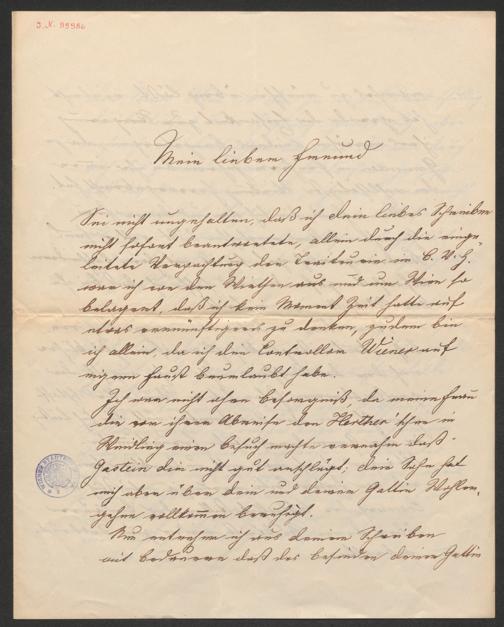 J. N. 99986
Mein lieber Freund
Sei nicht ungehalten, daß ich dein liebes Schreiben
nicht sofort beantwortete, allein durch die einge-
leitete Verpachtung der Territorien im B. U. H.
war ich von den Wirthen aus und um Wien so
belagert, daß ich kein Moment Zeit hatte auf
etwas vernünftigeres zu denken, zudem bin
ich allein, da ich den Controllor Wiener auf
eigene Faust beurlaubt habe.
Ich war nicht ohne Besorgniß, da meine Frau
die vor ihrer Abreise den Herther'schen in
Meidling einen Besuch machte vernahm daß
Gastein dir nicht gut anschlägt; dein Sohn hat
mich aber über dein und deiner Gattin Wohler-
gehen vollkommen beruhigt.
Nun entnehme ich aus deinem Schreiben
mit Bedauern daß das Befinden deiner Gattin